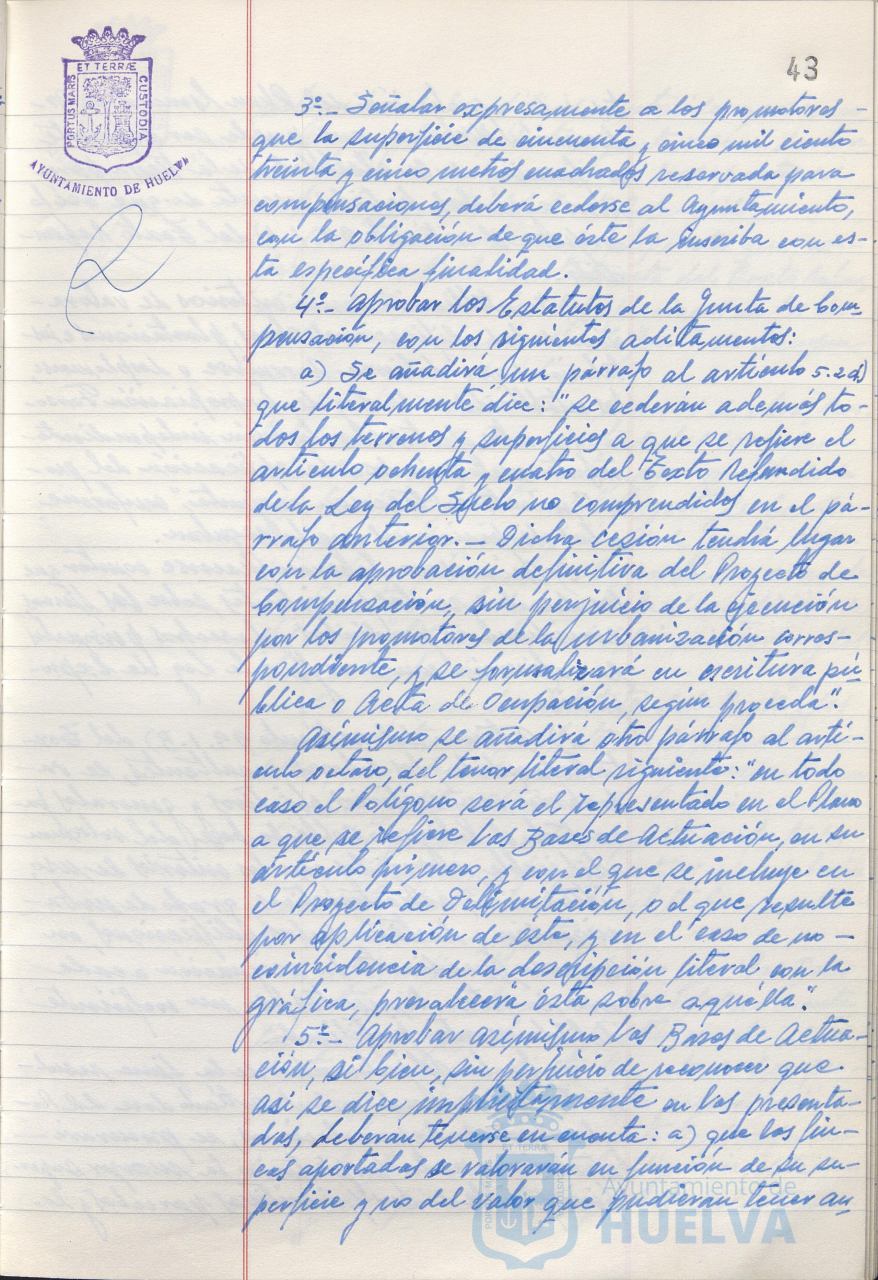 43
ET TERRÆ
PORTUS MARIS
CUSTODIA
AYUNTAMIENTO DE HUELVA
3º.- Señalar expresamente a los promotores -
que la superficie de cincuenta y cinco mil ciento
treinta y cinco metros cuadrados reservada para
compensaciones, deberá cederse al Ayuntamiento,
con la obligación de que éste la inscriba con es-
ta específica finalidad.
4º.- Aprobar los Estatutos de la Junta de Com-
pensación, con los siguientes aditamentos:
a) Se añadirá un párrafo al artículo 5.2 d)
que literalmente dice: "se cederán además to-
dos los terrenos y superficies a que se refiere el
artículo ochenta y cuatro del Texto Refundido
de la Ley del Suelo no comprendidos en el pá-
rrafo anterior. - Dicha cesión tendrá lugar
con la aprobación definitiva del Proyecto de
Compensación, sin perjuicio de la ejecución
por los promotores de la urbanización corres-
pondiente, y se formalizará en escritura pú-
blica o Acta de Ocupación, según proceda".
Asímismo se añadirá otro párrafo al artí-
culo octavo, del tenor literal siguiente: "en todo
caso el Polígono será el representado en el Plano
a que se refiere las Bases de Actuación, en su
artículo primero, y con el que se incluye en
el Proyecto de Delimitación, o el que resulte
por aplicación de éste, y en el caso de no -
coincidencia de la descripción literal con la
gráfica, prevalecerá ésta sobre aquélla".
5º.- Aprobar asímismo las Bases de Actua-
ción, si bien, sin perjuicio de reconocer que
así se dice implícitamente en las presenta-
das, deberán tenerse en cuenta: a) que las fin-
cas aportadas se valorarán en función de su su-
perficie y no del valor que pudieran tener an
Ayuntamiento de
HUELVA